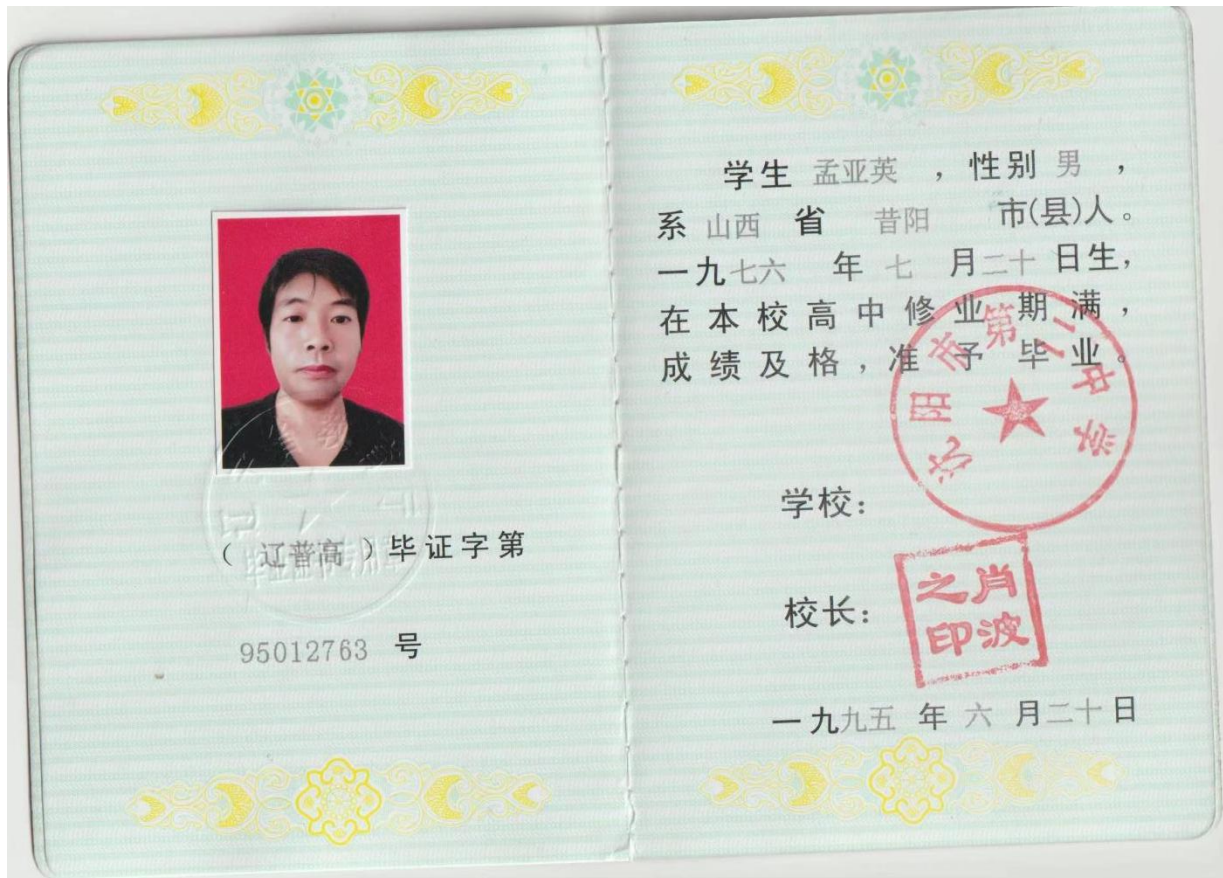 （ 辽普高 ）毕证字第
95012763 号
学生 孟亚英 ，性别 男 ，
系 山西 省 昔阳 市(县)人。
一九七六 年 七 月二十 日生，
在本校高中修业期满，
成绩及格，准予毕业。
沈阳市第二中学
学校：
校长：
肖波之印
一九九五 年 六 月二十日